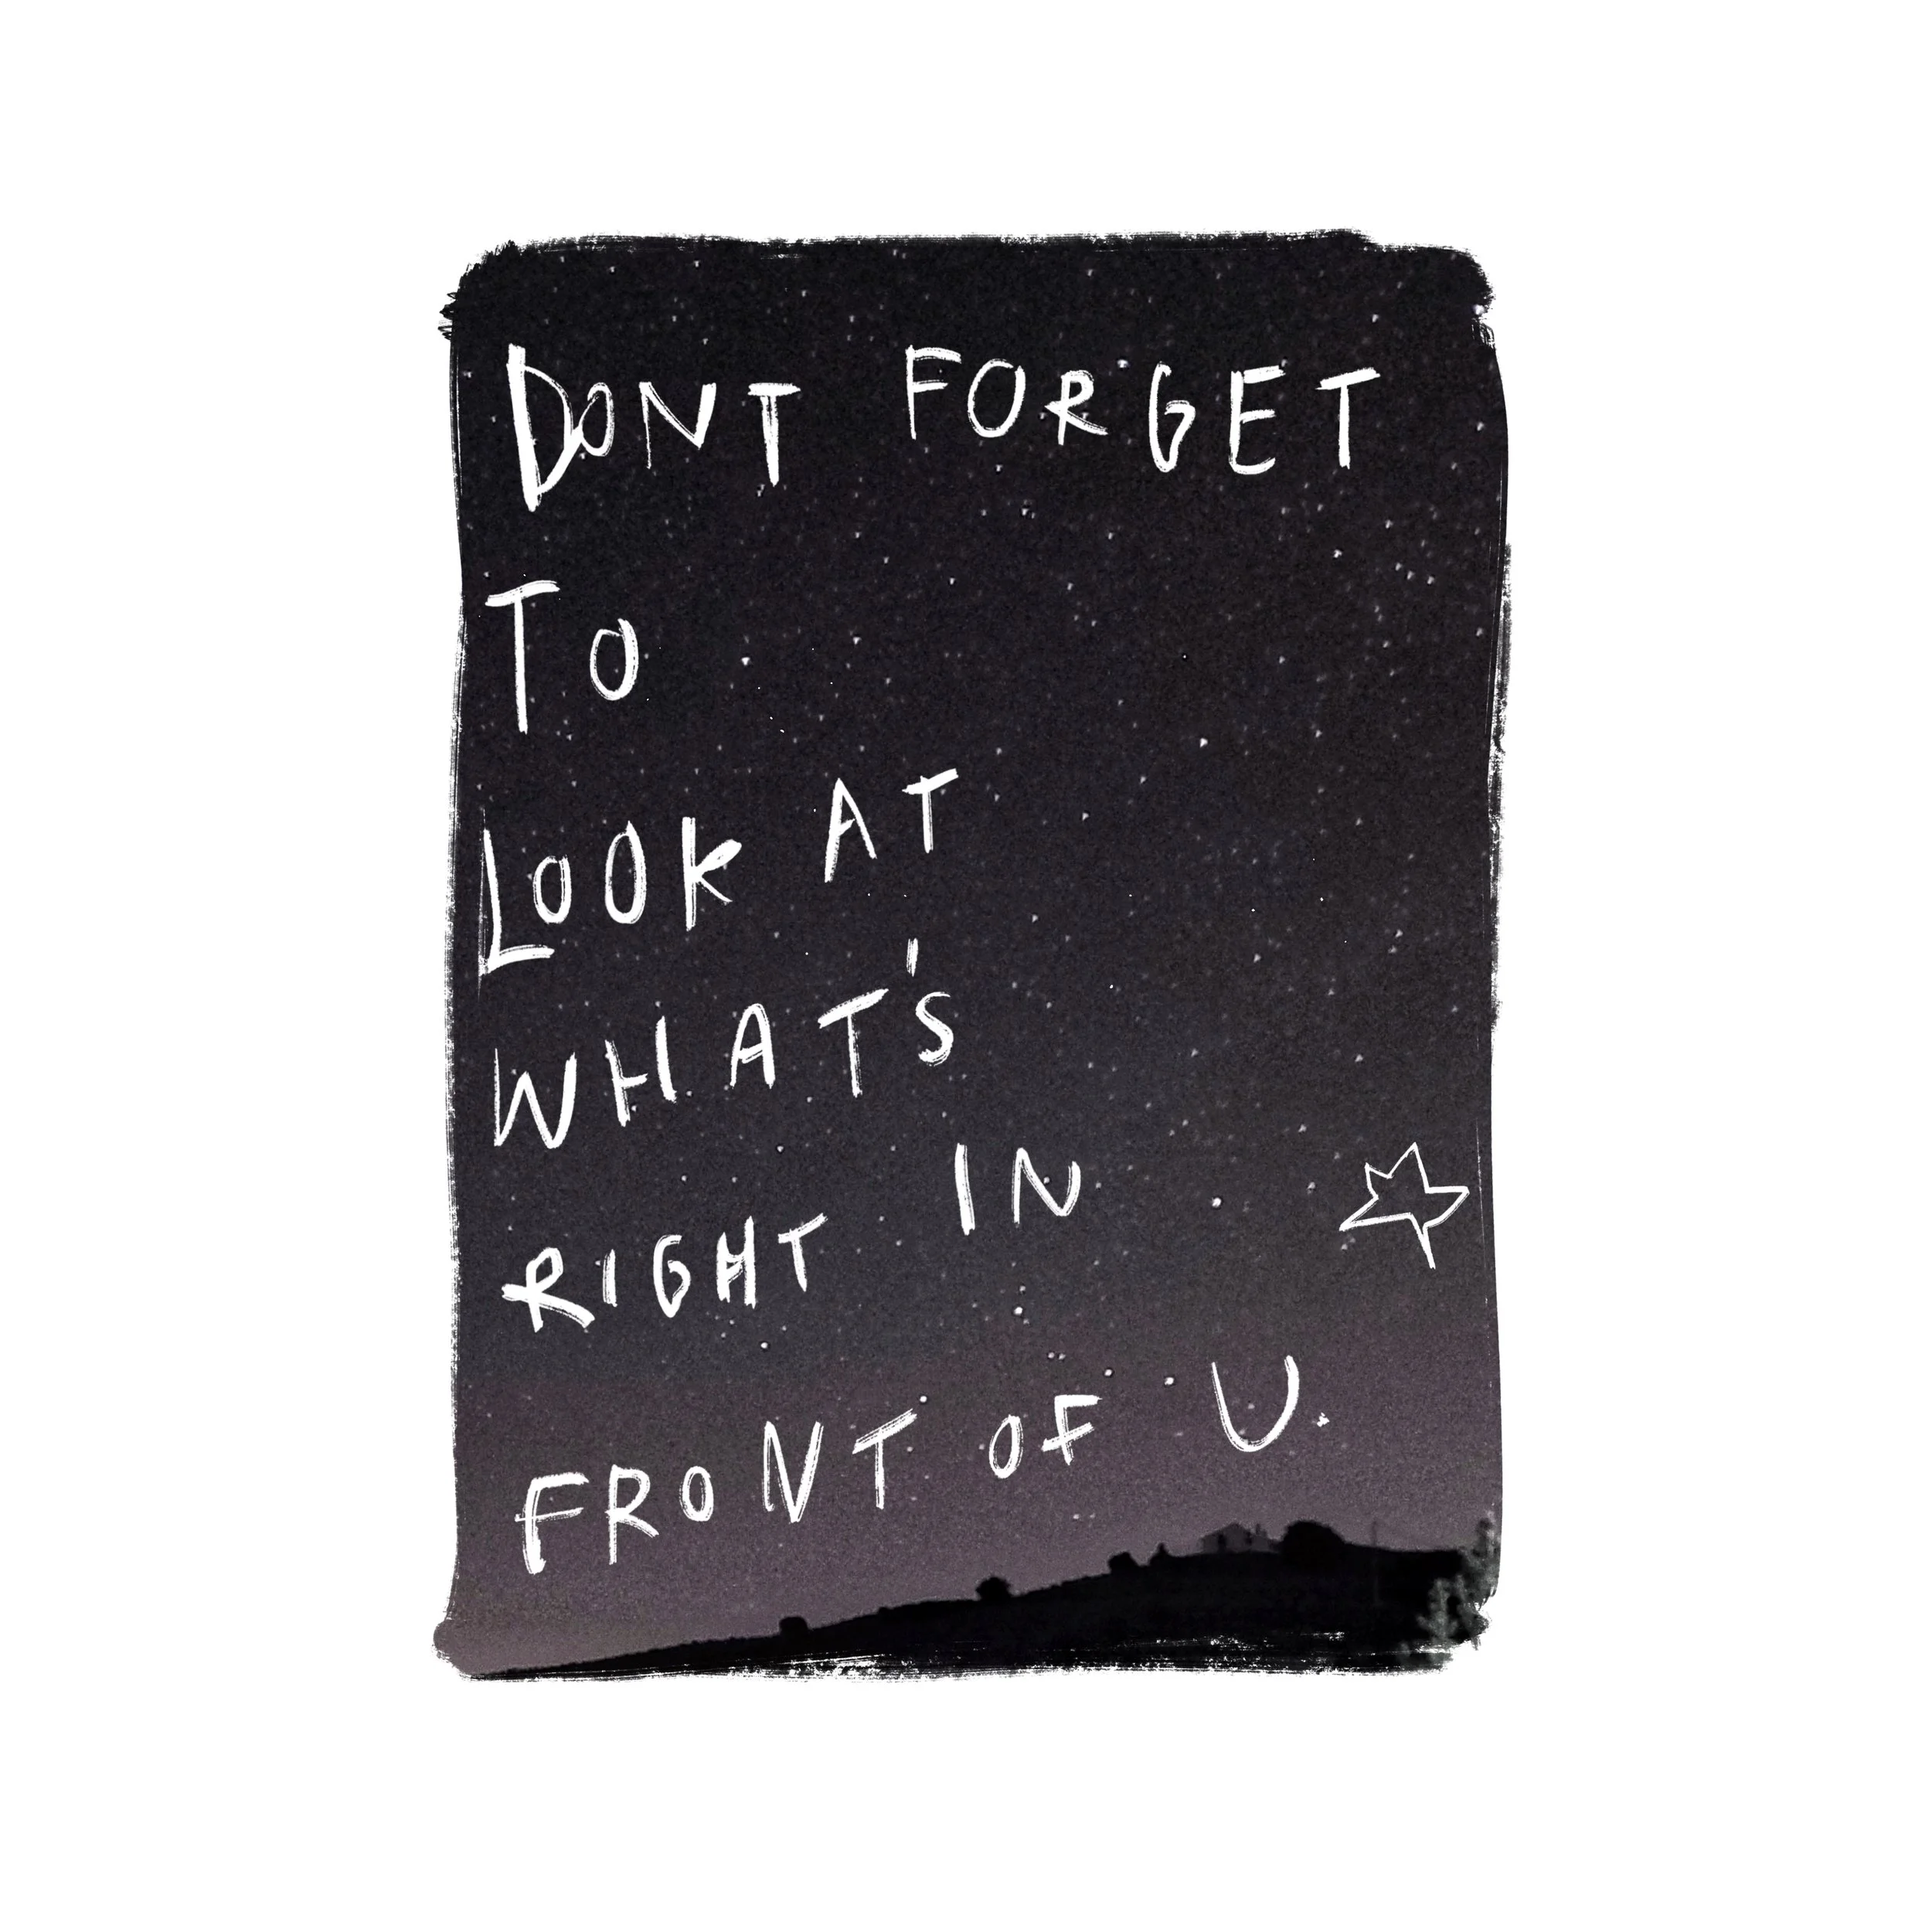 DONT FORGET
TO
LOOK AT
WHAT'S
RIGHT IN
FRONT OF U.